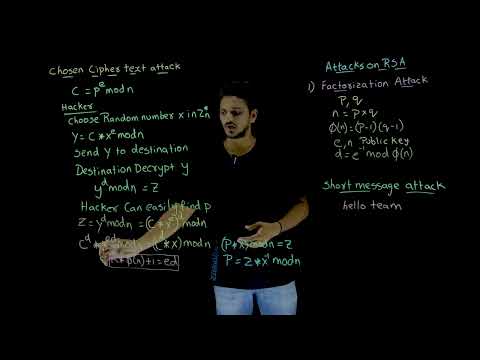 Chosen Cipher text attack
C = p^e mod n
Hacker
Choose Random number x in Zn*
Y = C * x^e mod n
Send Y to destination
Destination Decrypt y
y^d mod n = Z
Hacker Can easily find p
Z = y^d mod n = (C * x^e)^d mod n
= (C^d * x) mod n
φ(n) + 1 = ed
(P * x) mod n = Z
P = Z * x^-1 mod n
Attacks on RSA
1) Factorization Attack
P, q
n = P × q
φ(n) = (P-1)(q-1)
e, n Public Key
d = e^-1 mod φ(n)
Short message attack
hello team